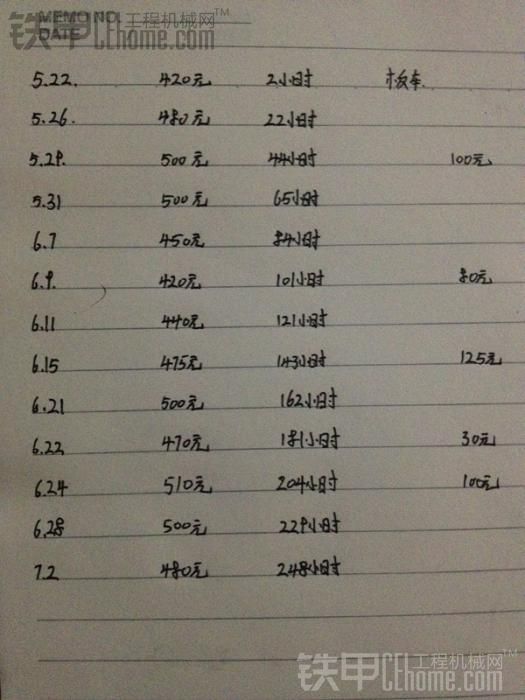 MEMO NO.
DATE
铁甲 工程机械网
CEhome.com
5.22. 420元 2小时 板车.
5.26. 480元 22小时
5.29. 500元 44小时 100元
5.31 500元 65小时
6.7 450元 84小时
6.9. 420元 101小时 80元
6.11 440元 121小时
6.15 475元 143小时 125元
6.21 500元 162小时
6.22 470元 181小时 30元
6.24 510元 204小时 100元
6.28 500元 229小时
7.2 480元 248小时
铁甲 工程机械网
CEhome.com